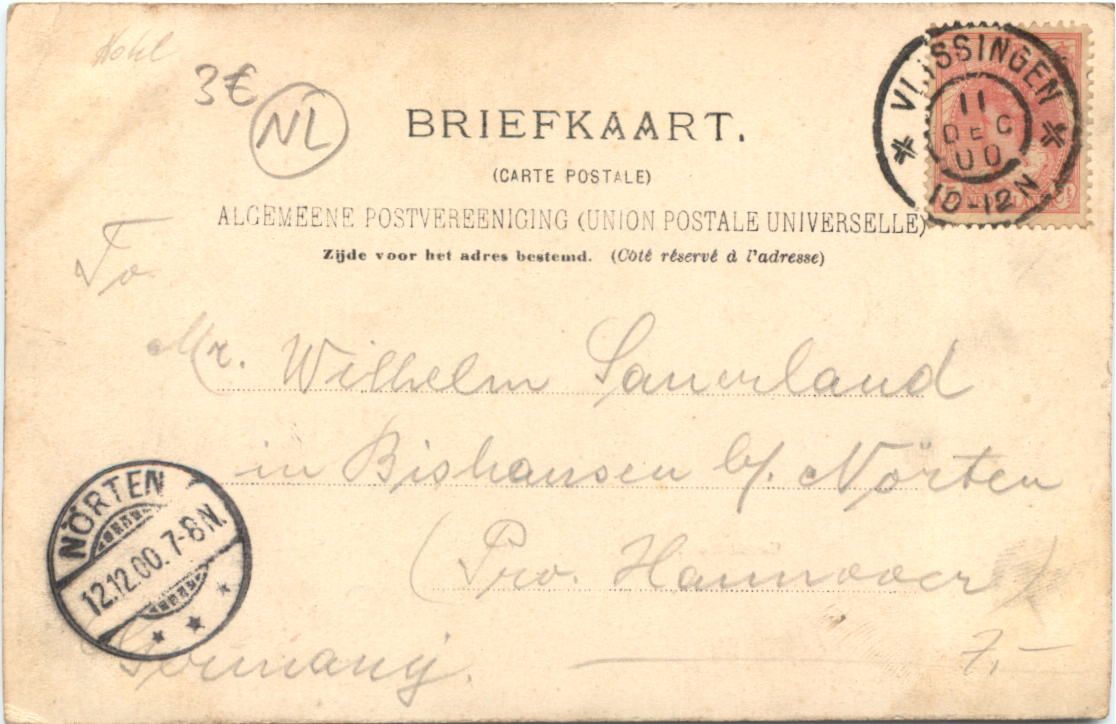 Hotel
3€
NL
BRIEFKAART.
(CARTE POSTALE)
ALGEMEENE POSTVEREENIGING (UNION POSTALE UNIVERSELLE)
Zijde voor het adres bestemd. (Côté réservé à l'adresse)
VLISSINGEN
11
DEC
00
10-12N
To
Mr. Wilhelm Sauerland
in Bishausen b/. Nörten
(Prov. Hannover)
Germany.
7,-
NÖRTEN
12.12.00.7-8N.